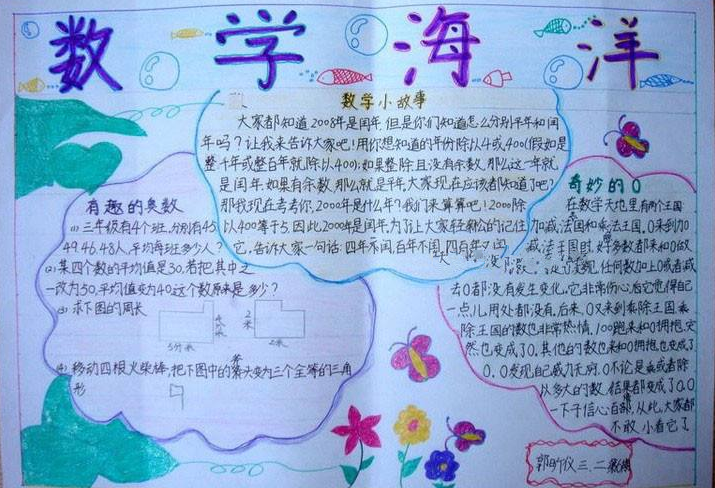 数学海洋
数学小故事
大家都知道2008年是闰年,但是你们知道怎么分别平年和闰
年吗?让我来告诉大家吧!用你想知道的年份除以4或400(假如是
整千年或整百年就除以400);如果整除且没有余数,那么这一年就
是闰年,如果有余数,那么就是平年,大家现在应该都知道了吧?
那我现在考考你,2000年是什么年?我们来算算吧!2000除
以400等于5,因此2000年是闰年,为了让大家轻松的记住
它,告诉大家一句话:四年一闰,百年不闰,四百年又闰
有趣的奥数
(1)三年级有4个班,分别有45
49.46.48人,平均每班多少人?
(2)某四个数的平均值是30,若把其中之
一改为50,平均值变为40这个数原来是多少?
(3)求下图的周长
5分米
2米
2米
(4)移动四根火柴棒,把下图中的斧头变为三个全等的三角
形
奇妙的0
在数学天地里,有两个王国
加减法国和乘法王国,0来到加
减法王国时,好多数都来和0做
发现,任何数加上0或者减
去0都没有发生变化,它非常伤心后它觉得自己
一点儿用处都没有,后来,0又来到乘除王国,乘
除王国的数也非常热情,100跑来和0拥抱,突
然也变成了0,其他的数也来和0拥抱,也变成了
0,0发现自己威力无穷,0不论是乘或者除
从多大的数,结果都变成了0,0
一下子信心百倍,从此,大家都
不敢小看它了
三、二